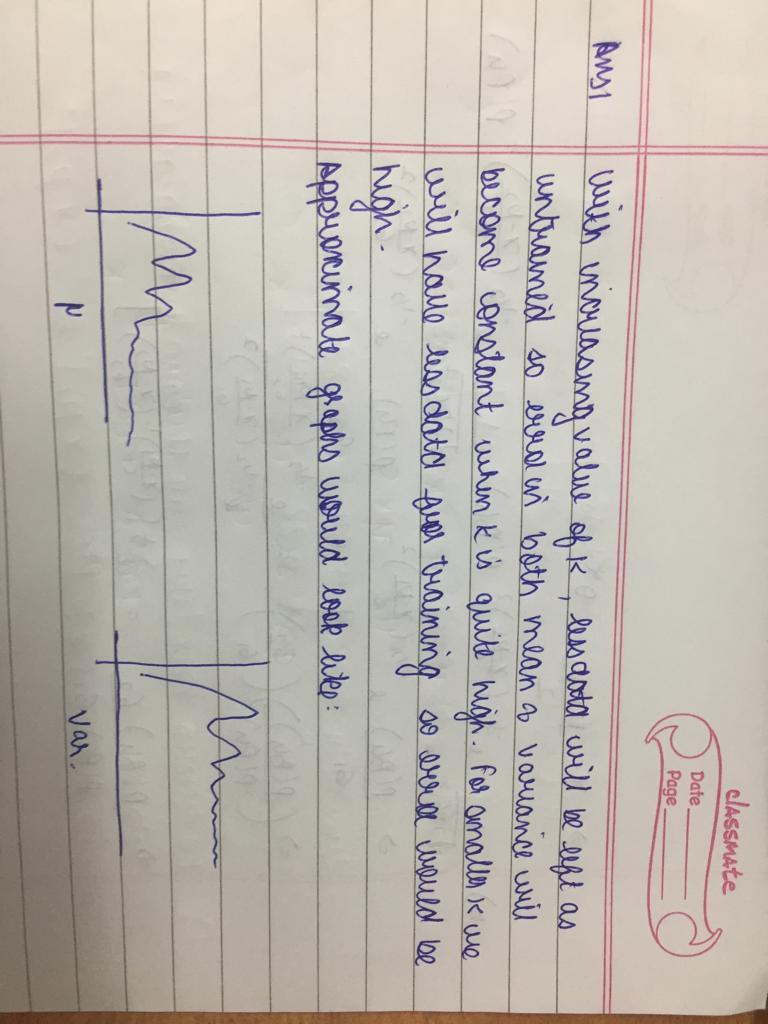 classmate
Date
Page
Ans1 With increasing value of K, less data will be left as
untrained so error in both mean & variance will
become constant when K is quite high. For smaller K we
will have less data for training so error would be
high.
Approximate graphs would look like:
μ
Var.